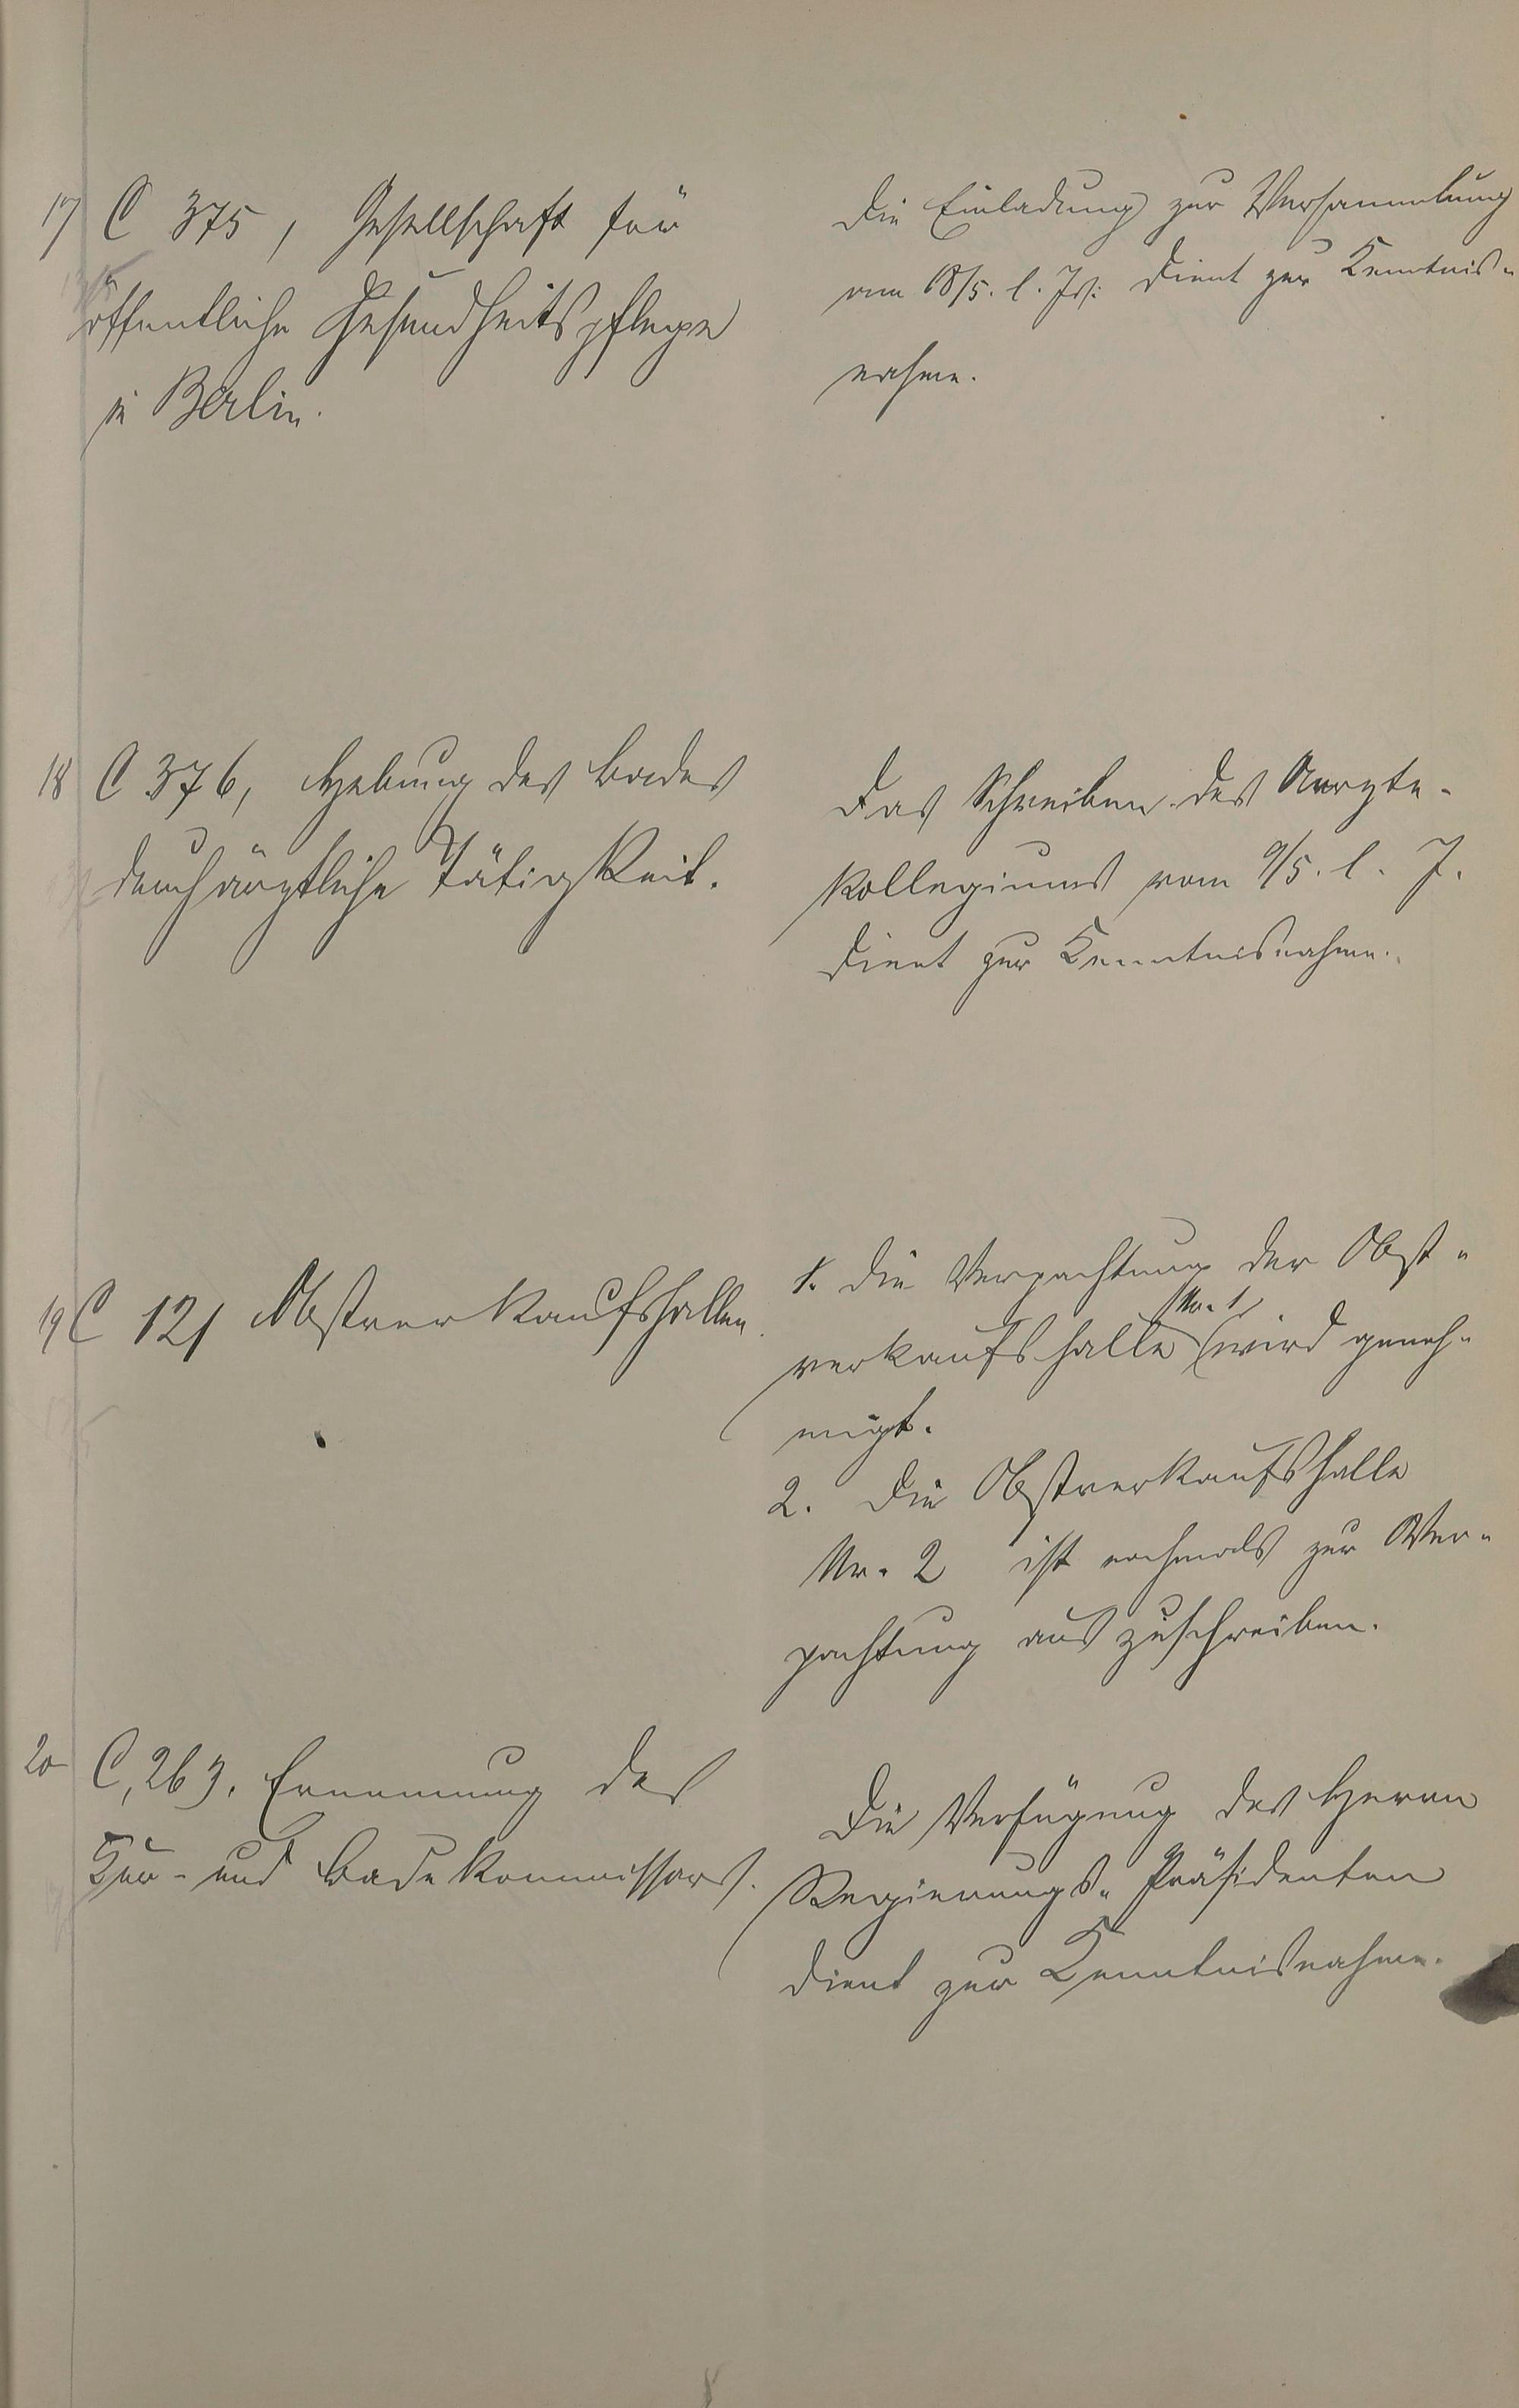 17 C 375, Gesellschaft für
öffentliche Gesundheitspflege
in Berlin.
Die Einladung zur Versammlung
am 18/5. l. Js. dient zur Kenntnis-
nahme.
18 C 376, Hebung des Bades
durch ärztliche Tätigkeit.
Das Schreiben des Aerzte-
kollegiums vom 9/5. l. J.
dient zur Kenntnisnahme.
19 C 121 Obstverkaufshallen.
1. Die Verpachtung der Obst-
verkaufshalle Nr. 1 wird geneh-
migt.
2. Die Obstverkaufshalle
Nr. 2 ist nochmals zur Ver-
pachtung auszuschreiben.
20 C, 263. Ernennung des
Kur- und Badekommissars.
Die Verfügung des Herrn
Regierungs-Präsidenten
dient zur Kenntnisnahme.